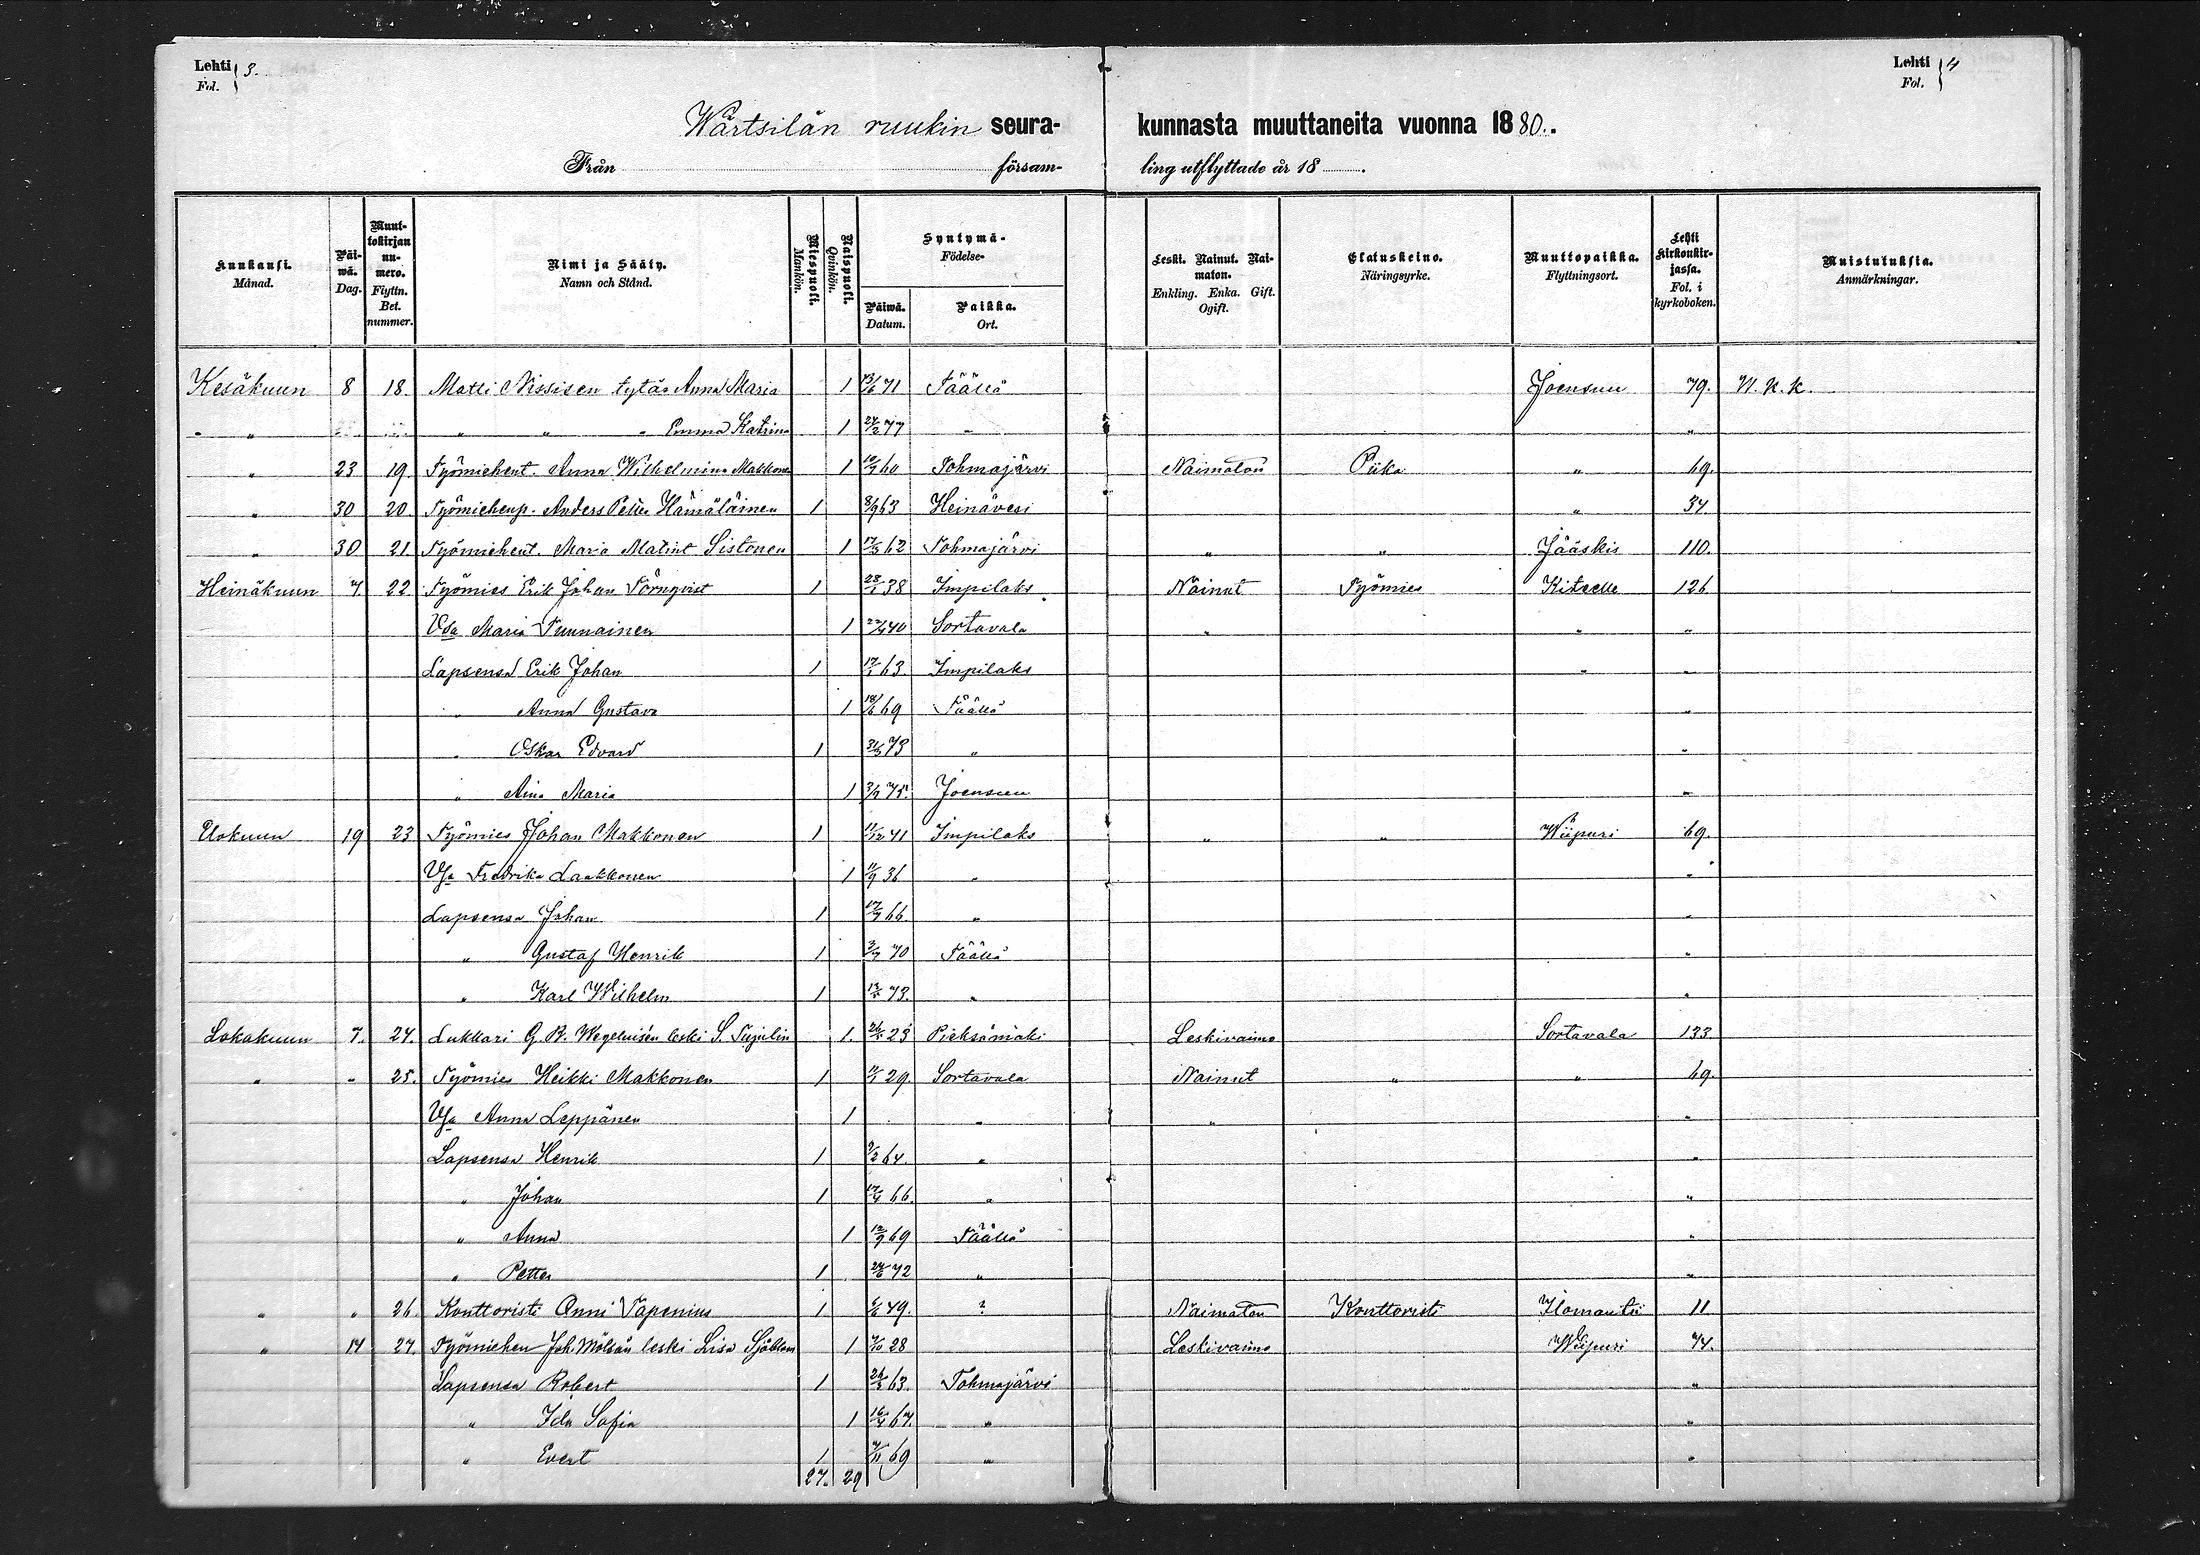 Lehti 3. Lehti 4
Fol. Fol.
Wärtsilän ruukin seura- kunnasta muuttaneita vuonna 1880.
Från församling utflyttade år 18 .
Kuukausi. Månad. Päiwä. Dag. Muuttokirjan numero. Flyttn. Bet. nummer. Nimi ja Sääty. Namn och Stånd. Miespuoli. Mankön. Naispuoli. Quinkön. Syntymä- Födelse- Päiwä. Datum. Paikka. Ort. Leski. Nainut. Naimaton. Enkling. Enka. Gift. Ogift. Elatuskeino. Näringsyrke. Muuttopaikka. Flyttningsort. Lehti kirkonkirjassa. Fol. i kyrkoboken. Muistutuksia. Anmärkningar.
Kesäkuun 8 18. Matti Nissisen tytär Anna Maria 1 13/6 71 Täällä Joensuu 79. N. k. k.
" " " " " Emma Katrina 1 24/2 77 " "
" 23 19. Työmiehent. Anna Wilhelmina Makkonen 1 10/7 60 Tohmajärvi Naimaton Piika " 69.
" 30 20 Työmiehenp. Anders Petter Hämäläinen 1 8/9 63 Heinävesi " 34.
" 30 21. Työmiehent. Maria Malint Sistonen 1 17/3 62 Tohmajärvi " " Jääskis 110.
Heinäkuun 7. 22 Työmies Erik Johan Törnqvist 1 28/1 38 Impilaks Nainut Työmies Kiteelle 126
Vsa Maria Tunnainen 1 22/4 40 Sortavala " " "
Lapsensa Erik Johan 1 17/1 63. Impilaks " "
" Anna Gustava 1 18/6 69 Täällä "
" Oskar Edvard 1 31/3 73 " "
" Aina Maria 1 3/7 75. Joensuu "
Elokuun 19 23 Työmies Johan Makkonen 1 11/12 41 Impilaks " " Wiipuri 69.
Vsa Fredrika Laakkonen 1 11/9 36 " "
Lapsensa Johan 1 17/7 66. " "
" Gustaf Henrik 1 3/7 70 Täällä "
" Karl Wilhelm 1 73. " "
Lokakuun 7. 24. Lukkari G. R. Wegeliusén leski S. 1. 23 Pieksämäki Leskivaimo Sortavala 133.
" " 25. Työmies Heikki Makkonen 1 29. Sortavala Nainut " " 69.
Vsa Anna Leppänen 1 " " "
Lapsensa Henrik 1 9/2 64. " "
" Johan 1 17/4 66. " "
" Anna 1 12/9 69 Täällä "
" Petter 1 24/6 72 " "
" " 26. Konttoristi Onni Tapenius 1 49. ? Naimaton Konttoristi Ilomantsi 11
" 14 27. Työmiehen Joh Mölsän leski Lisa Sjöblom 1 7/10 28 Leskivaimo Wiipuri 74.
Lapsensa Robert 1 63. Tohmajärvi "
" Ida Sofia 1 16/4 67. " "
" Evert 1 7/11 69 " "
27. 29